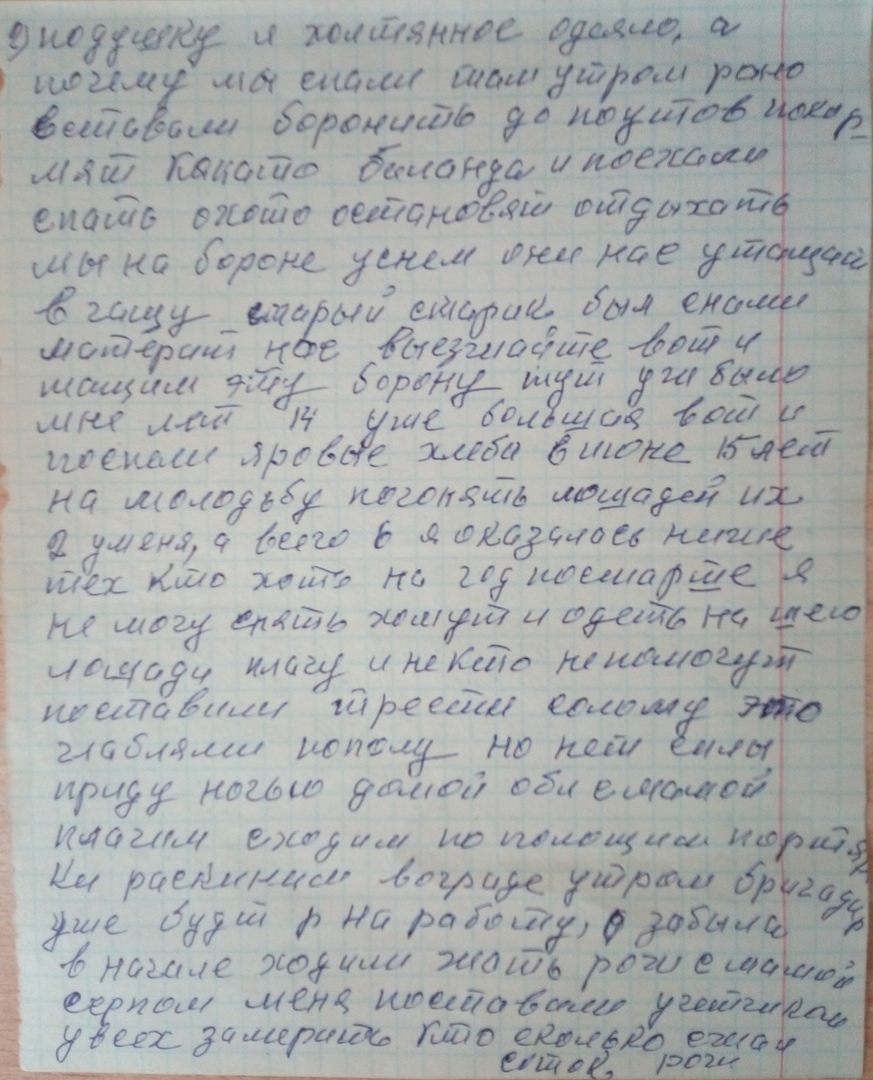 9) подушку и холтянное одеяло, а
почему мы спали там утром рано
вставали боронить до паутов покор_
мят какато баланда и поехали
спать охото остановят отдыхать
мы на бороне уснем они нас утащат
в чащу старый старик был снами
матерат нас выезжайте вот и
тащим эту борону тут уже было
мне лет 14 уже большая вот и
поспали яровые хлеба в июне 15 лет
на молодьбу погонять лошадей их
2 уменя, а всего 6 я оказалась ниже
тех кто хоть на год посмарте я
не могу снять хомут и одеть на шею
лошади плачу и некто непомогут
поставили трести солому это
граблями пополу но нет силы
приду ночью домой оби смамой
плачим сходим пополощим портян
ки раскиним вограде утром бригадир
уже будит р на работу, забыла
в начале ходили жать рожь смамой
серпом меня поставили учетчиком
увсех замерить кто сколько сжал
соток, рожи